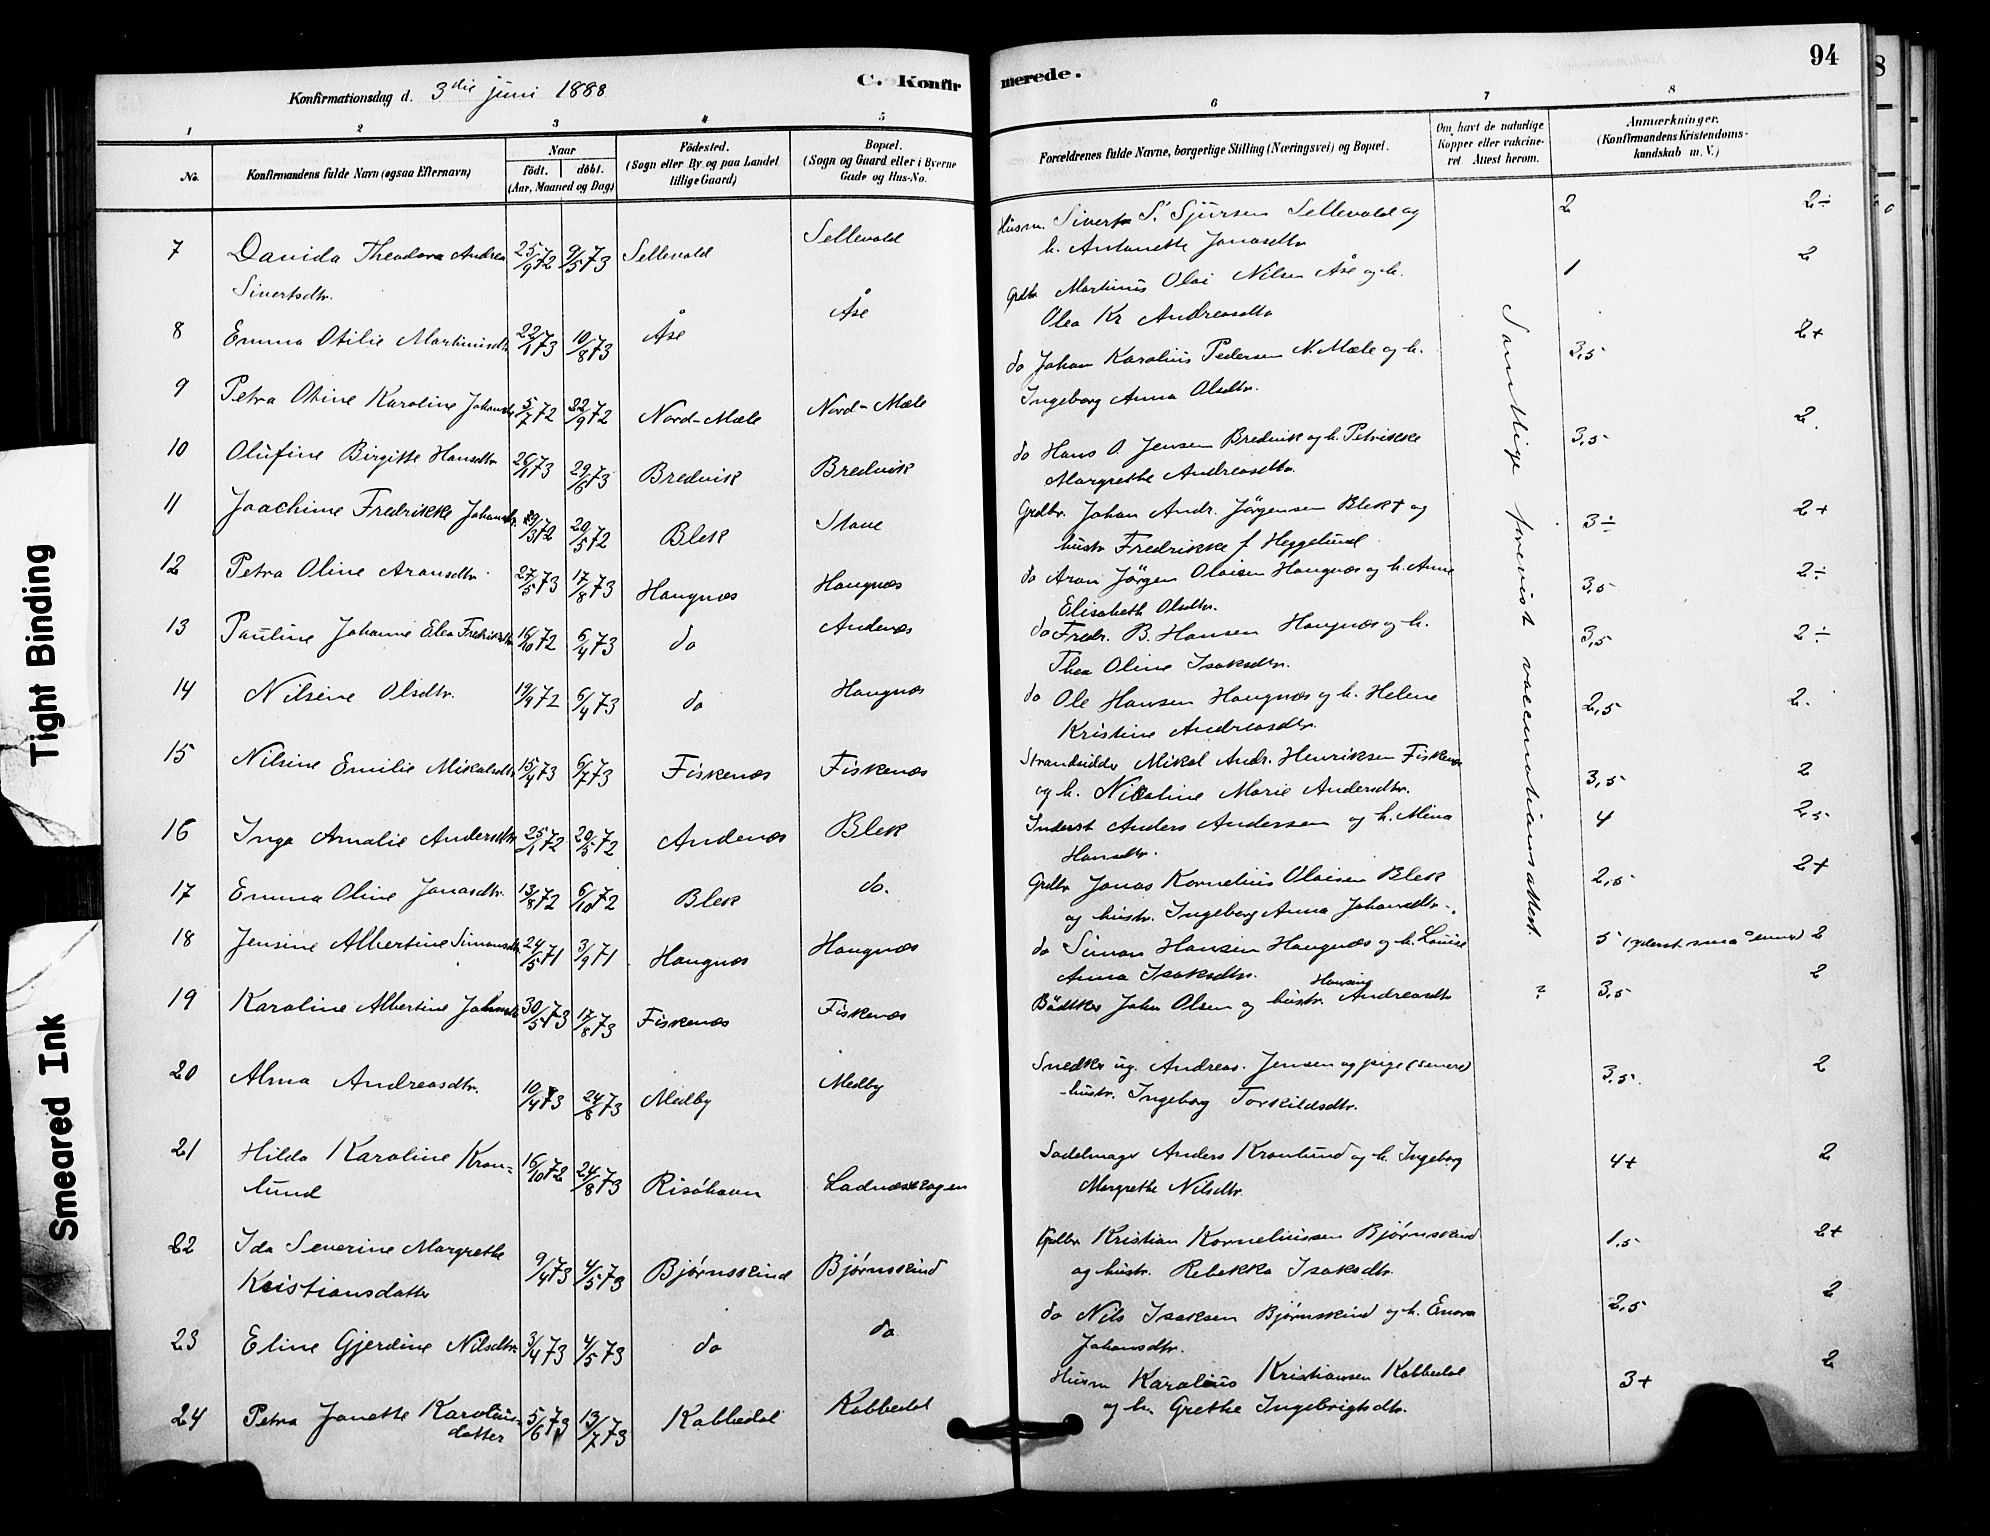 94
Konfirmationsdag d. 3die juni 1888
C. Konfirmerede.
1 2 3 4 5 6 7 8
No.
Konfirmandens fulde Navn (ogsaa Efternavn)
Naar
født. döbt.
(Aar, Maaned og Dag)
Födested.
(Sogn eller By og paa Landet
tillige Gaard)
Bopæl.
(Sogn og Gaard eller i Byerne
Gade og Hus-No.
Forældrenes fulde Navne, borgerlige Stilling (Næringsvei) og Bopæl.
Om havt de naturlige
Kopper eller vakcine-
ret. Attest herom.
Anmærkninger.
(Konfirmandens Kristendoms-
kundskab m. V.)
7 Davida Theodora Andrea 25/9 72 9/5 73 Sellevold Sellevold Husm. Sivert S. Sjursen Sellevold og 2 2÷
Sivertsdtr. h. Antonette Jonasdtr
8 Emma Otilie Martinusdtr 22/ 73 10/8 73 Åse Åse Grdbr Martinus Olai Nilsen Åse og h. 1 2
Olea Kr Andreasdtr
9 Petra Oline Karoline Johansdtr 5/7 72 22/9 72 Nord-Mæle Nord-Mæle do Johan Karolius Pedersen N. Mæle og h. 3,5 2+
Ingeborg Anna Olsdtr.
10 Olufine Birgitte Hansdtr 26/1 73 29/6 73 Bredvik Bredvik do Hans O. Jensen Bredvik og h. Petrikke 3,5 2.
Margrethe Andreasdtr.
11 Joachime Fredrikke Johansdtr. 29/3 72 20/5 72 Blek Stave Grdbr. Johan Andr. Jørgensen Blek + og 3÷ 2+
hustr Fredrikke f. Heggelund
12 Petra Oline Aronsdtr 27/5 73 17/8 73 Haugnæs Haugnæs do Aron Jørgen Olaisen Haugnæs og h. Anne 3,5 2÷
Elisabeth Olsdtr.
13 Pauline Johanne Elea Fredriksdtr 16/10 72 6/4 73 do Andenæs do Fredr. B. Hansen Haugnæs og h. 3,5 2÷
Thea Oline Isaksdtr.
14 Nilsine Olsdtr. 19/9 72 6/4 73 do Haugnæs do Ole Hansen Haugnæs og h. Helene 2,5 2.
Kristine Andreasdtr.
15 Nilsine Emilie Mikalsdtr 15/4 73 6/7 73 Fiskenæs Fiskenæs Strandsidder Mikal Andr. Henriksen Fiskenæs 3,5 2
og h. Nicoline Marie Andersdtr.
16 Inga Amalie Andersdtr 25/1 72 20/5 72 Andenæs Blek Inderst Anders Andersen og h. Mina 4 2,5
Hansdtr.
17 Emma Oline Jonasdtr. 13/8 72 6/10 72 Blek do. Grdbr Jonas Kornelius Olaisen Blek 2,5 2+
og hustr. Ingeborg Anna Johansdtr.
18 Jensine Albertine Simonsdtr 24/5 71 3/9 71 Haugnæs Haugnæs do Simon Hansen Haugnæs og h. Louise 5 (yderst små evner) 2
Anna Isaksdtr.
19 Karoline Albertine Johnsdtr 30/5 73 17/8 73 Fiskenæs Fiskenæs Bødtker John Olsen og hustr. Hansine Andreasdtr ? 3,5 2
20 Alma Andreasdtr. 10/4 73 24/8 73 Medby Medby Snedker ug. Andreas Jensen og pige (senere) 3,5 2
hustr. Ingeborg Torkildsdtr.
21 Hilda Karoline Kron= 16/10 72 24/8 73 Risøhavn Ladnæsskogen Sadelmager Anders Kronlund og h. Ingeborg 4+ 2
lund Margrethe Nilsdtr.
22 Ida Severine Margrethe 9/4 73 4/5 73 Bjørnsskind Bjørnsskind Grdbr Kristian Korneliussen Bjørnsskind 1,5 2+
Kristiansdatter og hustr. Rebekka Isaksdtr.
23 Eline Gjerdine Nilsdtr. 3/4 73 4/5 73 do do do Nils Isaksen Bjørnskind og h. Enora 2,5 2
Johansdtr.
24 Petra Janette Karolius- 5/6 73 13/7 73 Kobbedal Kobbedal Husm Karolius Kristiansen Kobbedal 3+ 2
datter og h. Grethe Ingebrigtsdtr.
Samtlige forevist vaccinationsattest.
Tight Binding
Smeared Ink